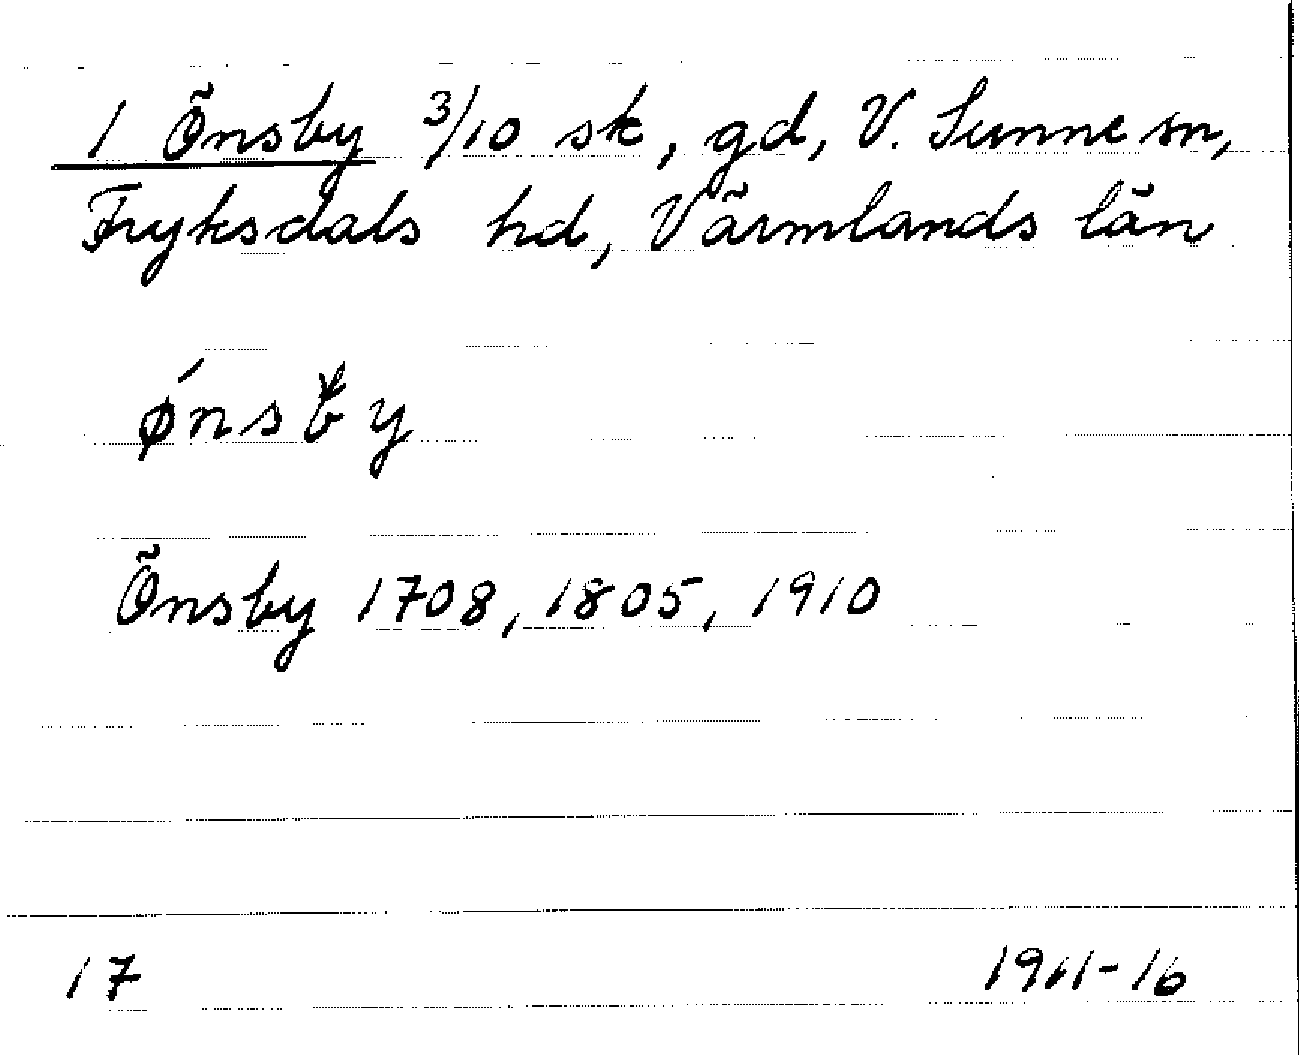 1 Önsby 3/10 sk, gd, V. Sunne sn,
Fryksdals hd, Värmlands län
ǿnsby
Önsby 1708, 1805, 1910
17 1911-16